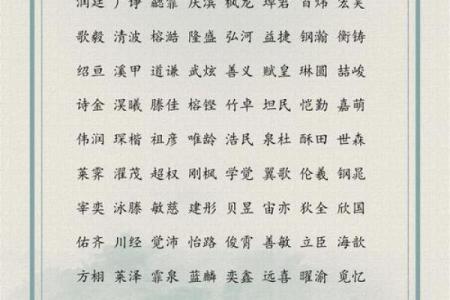 歌毅 清波 榕浩 隆盛 弘河 益捷 钢瀚 衡铸
绍亘 溪甲 道谦 武炫 善义 赋皇 琳圆 喆峻
诗金 淏曦 滕佳 榕铿 竹卓 坦民 恺勤 嘉萌
伟润 琛楷 祖彦 唯龄 浩民 泉杜 酥田 世森
莱霁 濯茂 超权 刚枫 学觉 翼歌 伦羲 钢晁
宰奕 泳滕 敏慈 建彤 贝昱 宙亦 狄全 欣国
佑齐 川经 觉沛 怡路 俊霄 善敏 立臣 海歆
方栩 莱泽 霏泉 蓝麟 奕鑫 远喜 曜渝 觅忆